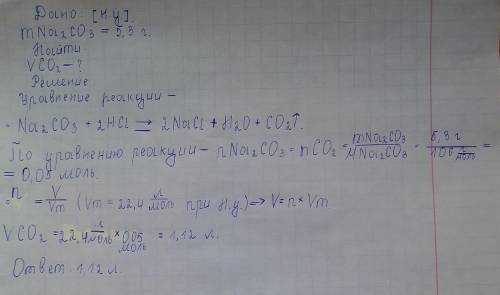 Дано: [н.у]
mNa₂CO₃ = 5,3 г.
Найти
VCO₂ - ?
Решение
Уравнение реакции -
- Na₂CO₃ + 2HCl ⇒ 2NaCl + H₂O + CO₂↑.
По уравнению реакции - nNa₂CO₃ = nCO₂ = mNa₂CO₃ / MNa₂CO₃ = 5,3 г / 106 г/моль =
= 0,05 моль.
n = V/Vm (Vm = 22,4 л/моль при н.у.) ⇒ V = n × Vm
VCO₂ = 22,4 л/моль × 0,05 моль = 1,12 л.
Ответ: 1,12 л.